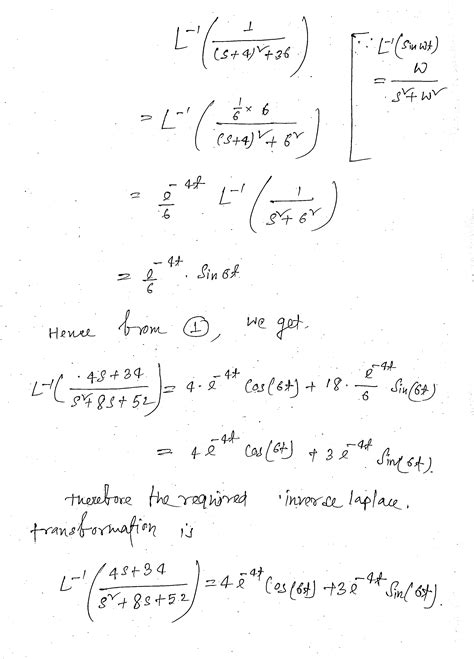 L⁻¹(1/((s+4)²+36)) [∵ L⁻¹(sin wt) = w/(s²+w²)
= L⁻¹((1/6 × 6)/((s+4)²+6²))
= e^(-4t)/6 L⁻¹(1/(s²+6²))
= e^(-4t)/6 . Sin 6t
Hence from ①, we get.
L⁻¹(4s+34/(s²+8s+52)) = 4·e^(-4t) Cos(6t) + 18· e^(-4t)/6 Sin(6t)
= 4e^(-4t) Cos(6t) + 3e^(-4t) Sin(6t).
therefore the required inverse laplace.
transformation is
L⁻¹(4s+34/(s²+8s+52)) = 4e^(-4t) Cos(6t) + 3e^(-4t) Sin(6t).